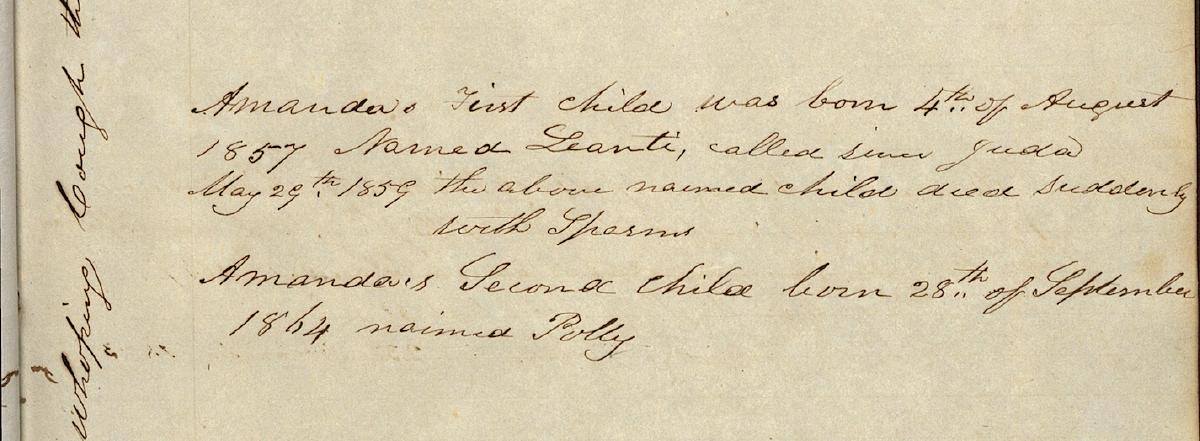 Amanda's First child was born 4th of August
1857 Named Leanti, called sinc Juda
May 29th 1859 the above naimed child died suddenly
with Spasms
Amanda's Second child born 28th of September
1864 naimed Polly
Whoping Cough th